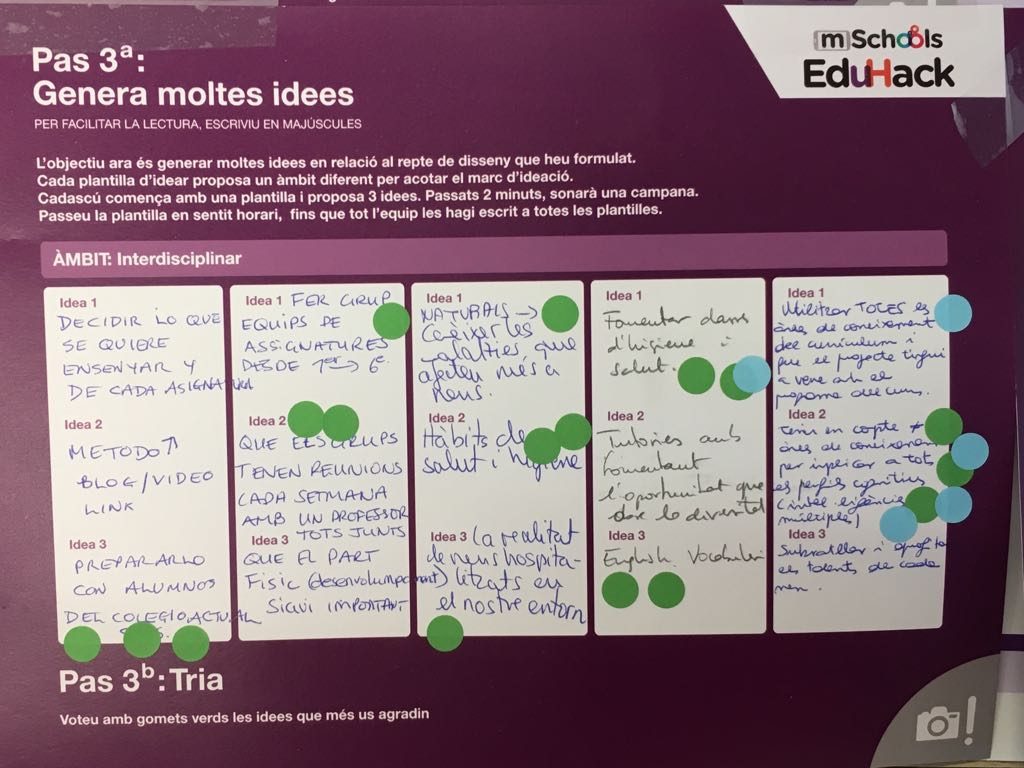 Pas 3ª:
Genera moltes idees
PER FACILITAR LA LECTURA, ESCRIVIU EN MAJÚSCULES
mSchools
EduHack
L'objectiu ara és generar moltes idees en relació al repte de disseny que heu formulat.
Cada plantilla d'idear proposa un àmbit diferent per acotar el marc d'ideació.
Cadascú comença amb una plantilla i proposa 3 idees. Passats 2 minuts, sonarà una campana.
Passeu la plantilla en sentit horari, fins que tot l'equip les hagi escrit a totes les plantilles.
ÀMBIT: Interdisciplinar
Idea 1
DECIDIR LO QUE
SE QUIERE
ENSENYAR Y
DE CADA ASIGNATURA
Idea 2
METODO ↑
BLOG/VIDEO
LINK
Idea 3
PREPARARLO
CON ALUMNOS
DEL COLEGIO, ACTUAL
Idea 1 FER GRUP
EQUIPS DE
ASSIGNATURES
DESDE 1er → 6e
Idea 2
QUE ELS GRUPS
TENEN REUNIONS
CADA SETMANA
AMB UN PROFESSOR
TOTS JUNTS
Idea 3
QUE EL PART
FISIC (desenvolupament)
SIGUI IMPORTANT
Idea 1
NATURALS →
Conèixer les
malalties que
afecten més a
nens.
Idea 2
Hàbits de
salut i higiene
Idea 3 (a realitat
de nens hospita-
litzats en
el nostre entorn
Idea 1
Fomentar
d'higiene i
salut.
Idea 2
Tutories amb
fomentant
l'oportunitat que
la diversitat
Idea 3
English Vocabulari
Idea 1
Utilitzar TOTES les
àrees de coneixement
del currículum i
que el projecte tingui
a veure amb el
programa del curs.
Idea 2
Tenir en compte ≠
àrees de coneixement
per implicar a tots
els perfils cognitius
(intel·ligències
múltiples)
Idea 3
Subratllar i
els talents de cada
nen.
Pas 3b: Tria
Voteu amb gomets verds les idees que més us agradin